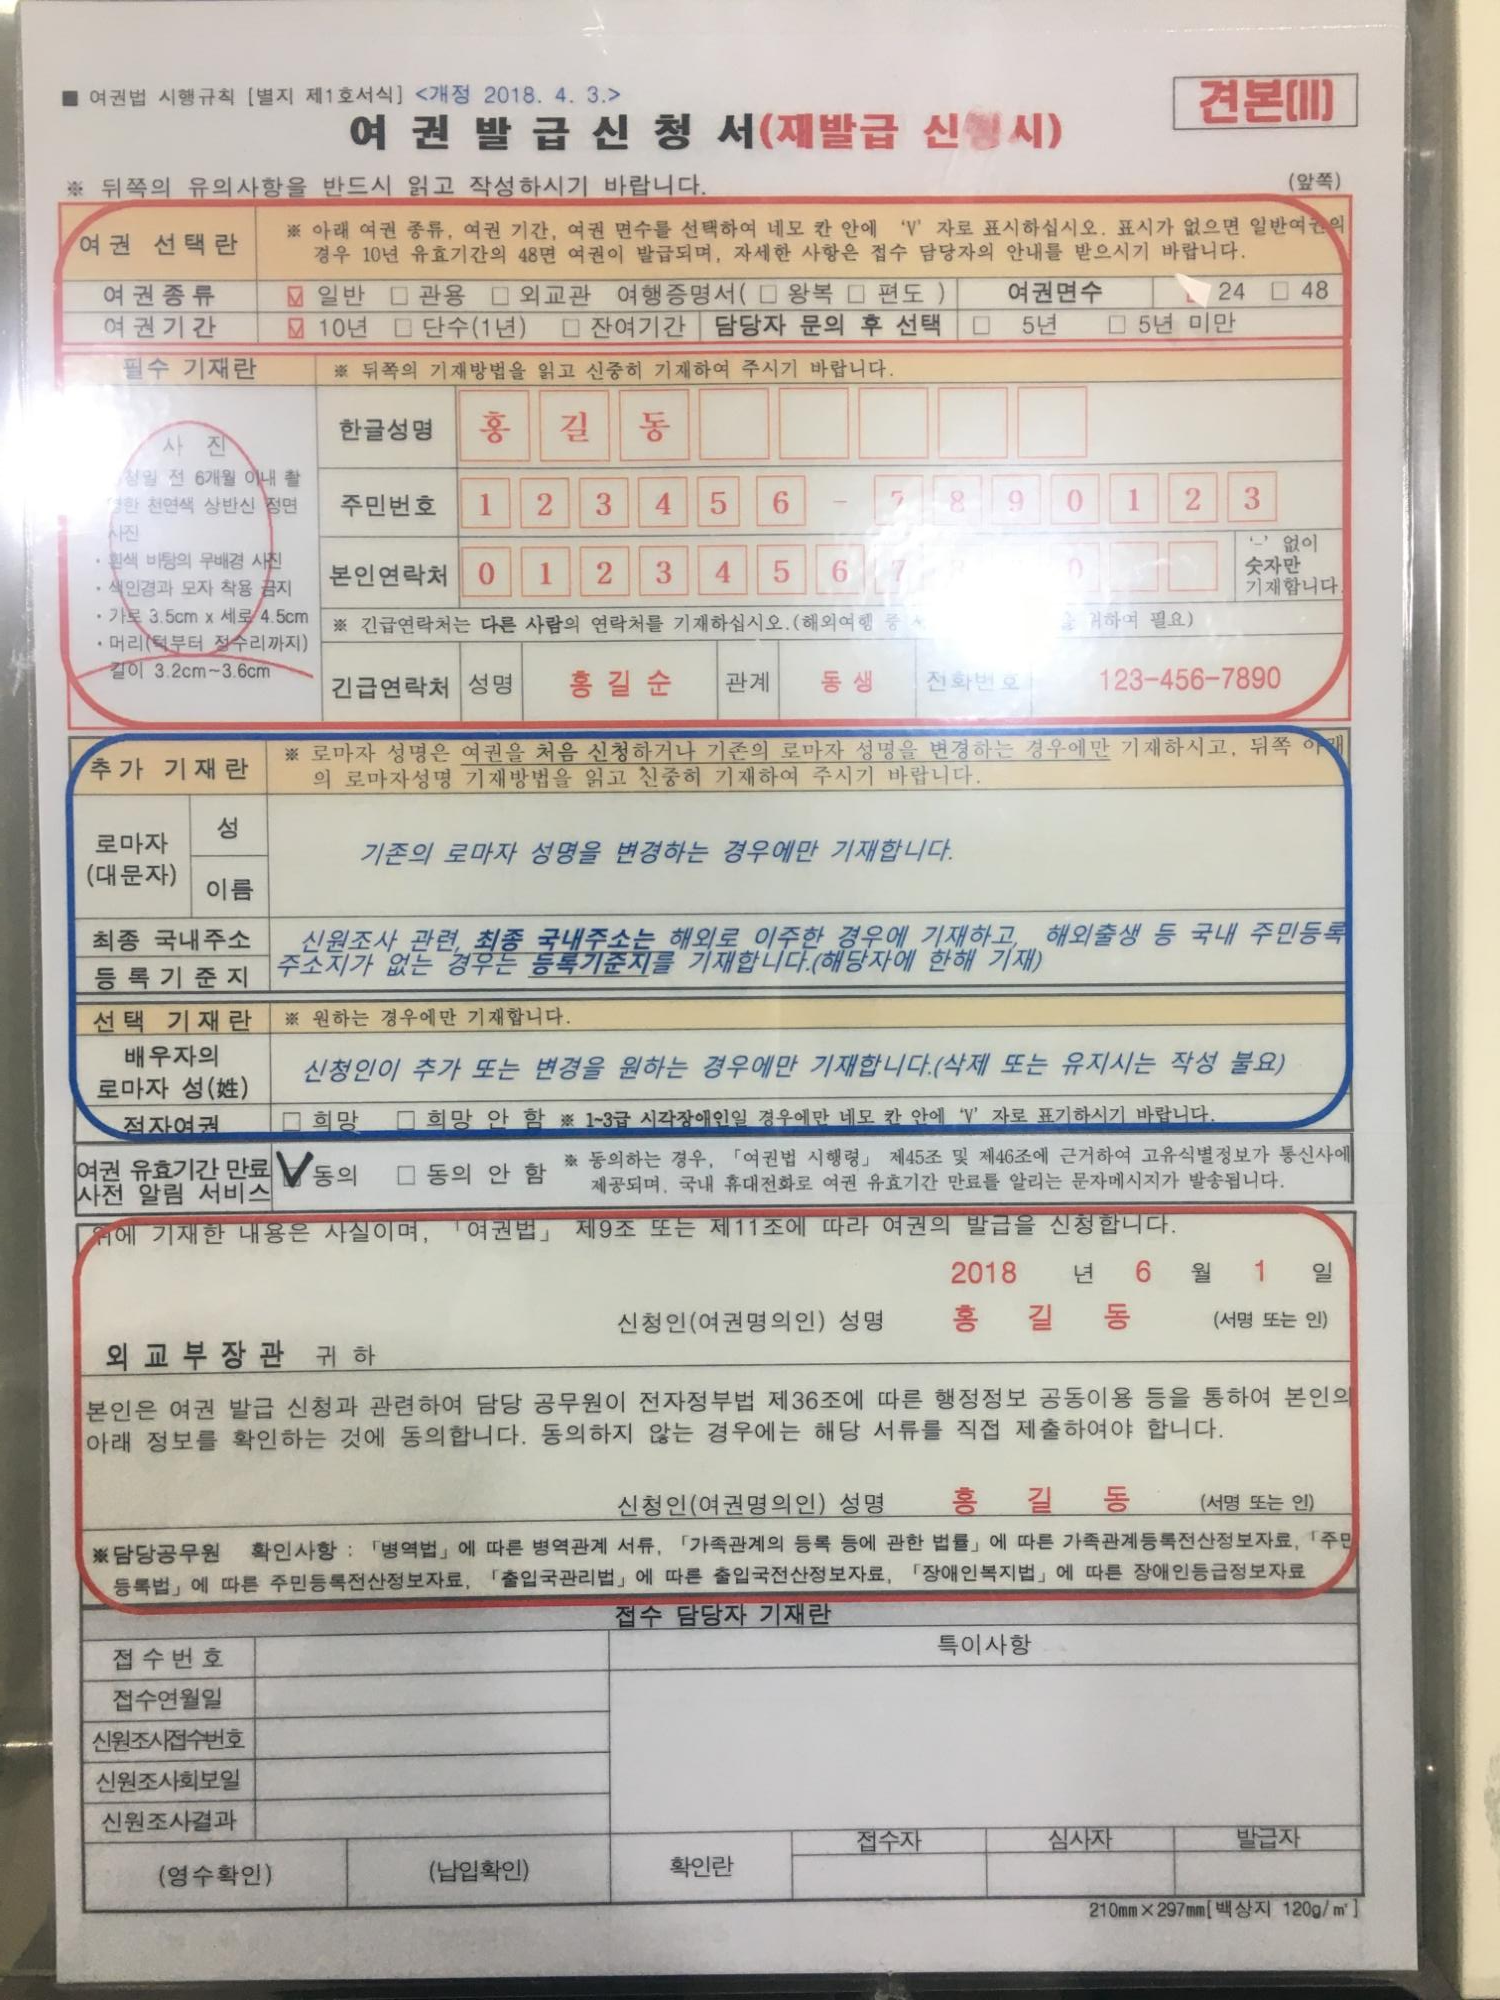 ■ 여권법 시행규칙 [별지 제1호서식] <개정 2018. 4. 3.>
견본(II)
여 권 발 급 신 청 서(재발급 신 시)
※ 뒤쪽의 유의사항을 반드시 읽고 작성하시기 바랍니다.
(앞쪽)
여권 선택란
※ 아래 여권 종류, 여권 기간, 여권 면수를 선택하여 네모 칸 안에 ‘V’ 자로 표시하십시오. 표시가 없으면 일반여권의
경우 10년 유효기간의 48면 여권이 발급되며, 자세한 사항은 접수 담당자의 안내를 받으시기 바랍니다.
여권종류 ☑ 일반 □ 관용 □ 외교관 여행증명서( □ 왕복 □ 편도 ) 여권면수 24 □ 48
여권기간 ☑ 10년 □ 단수(1년) □ 잔여기간 담당자 문의 후 선택 □ 5년 □ 5년 미만
필수 기재란 ※ 뒤쪽의 기재방법을 읽고 신중히 기재하여 주시기 바랍니다.
사 진
청일 전 6개월 이내 촬
영한 천연색 상반신 정면
사진
· 흰색 바탕의 무배경 사진
· 색안경과 모자 착용 금지
· 가로 3.5cm x 세로 4.5cm
· 머리(턱부터 정수리까지)
길이 3.2cm~3.6cm
한글성명 홍 길 동
주민번호 1 2 3 4 5 6 - 7 8 9 0 1 2 3
본인연락처 0 1 2 3 4 5 6 7 8 0
‘-’ 없이
숫자만
기재합니다.
※ 긴급연락처는 다른 사람의 연락처를 기재하십시오.(해외여행 중 위하여 필요)
긴급연락처 성명 홍 길 순 관계 동 생 전화번호 123-456-7890
추가 기재란
※ 로마자 성명은 여권을 처음 신청하거나 기존의 로마자 성명을 변경하는 경우에만 기재하시고, 뒤쪽 아래
의 로마자성명 기재방법을 읽고 신중히 기재하여 주시기 바랍니다.
로마자
(대문자)
성
이름
기존의 로마자 성명을 변경하는 경우에만 기재합니다.
최종 국내주소
등록기준지
신원조사 관련, 최종 국내주소는 해외로 이주한 경우에 기재하고, 해외출생 등 국내 주민등록
주소지가 없는 경우는 등록기준지를 기재합니다.(해당자에 한해 기재)
선택 기재란 ※ 원하는 경우에만 기재합니다.
배우자의
로마자 성(姓)
신청인이 추가 또는 변경을 원하는 경우에만 기재합니다.(삭제 또는 유지시는 작성 불요)
점자여권 □ 희망 □ 희망 안 함 ※ 1~3급 시각장애인일 경우에만 네모 칸 안에 ‘V’ 자로 표기하시기 바랍니다.
여권 유효기간 만료
사전 알림 서비스
☑ 동의 □ 동의 안 함
※ 동의하는 경우, 「여권법 시행령」 제45조 및 제46조에 근거하여 고유식별정보가 통신사에
제공되며, 국내 휴대전화로 여권 유효기간 만료를 알리는 문자메시지가 발송됩니다.
위에 기재한 내용은 사실이며, 「여권법」 제9조 또는 제11조에 따라 여권의 발급을 신청합니다.
2018 년 6 월 1 일
신청인(여권명의인) 성명 홍 길 동 (서명 또는 인)
외교부장관 귀하
본인은 여권 발급 신청과 관련하여 담당 공무원이 전자정부법 제36조에 따른 행정정보 공동이용 등을 통하여 본인의
아래 정보를 확인하는 것에 동의합니다. 동의하지 않는 경우에는 해당 서류를 직접 제출하여야 합니다.
신청인(여권명의인) 성명 홍 길 동 (서명 또는 인)
※담당공무원 확인사항 : 「병역법」에 따른 병역관계 서류, 「가족관계의 등록 등에 관한 법률」에 따른 가족관계등록전산정보자료, 「주민
등록법」에 따른 주민등록전산정보자료, 「출입국관리법」에 따른 출입국전산정보자료, 「장애인복지법」에 따른 장애인등급정보자료
접수 담당자 기재란
접수번호
특이사항
접수연월일
신원조사접수번호
신원조사회보일
신원조사결과
(영수확인) (납입확인) 확인란 접수자 심사자 발급자
210mm×297mm[백상지 120g/㎡]